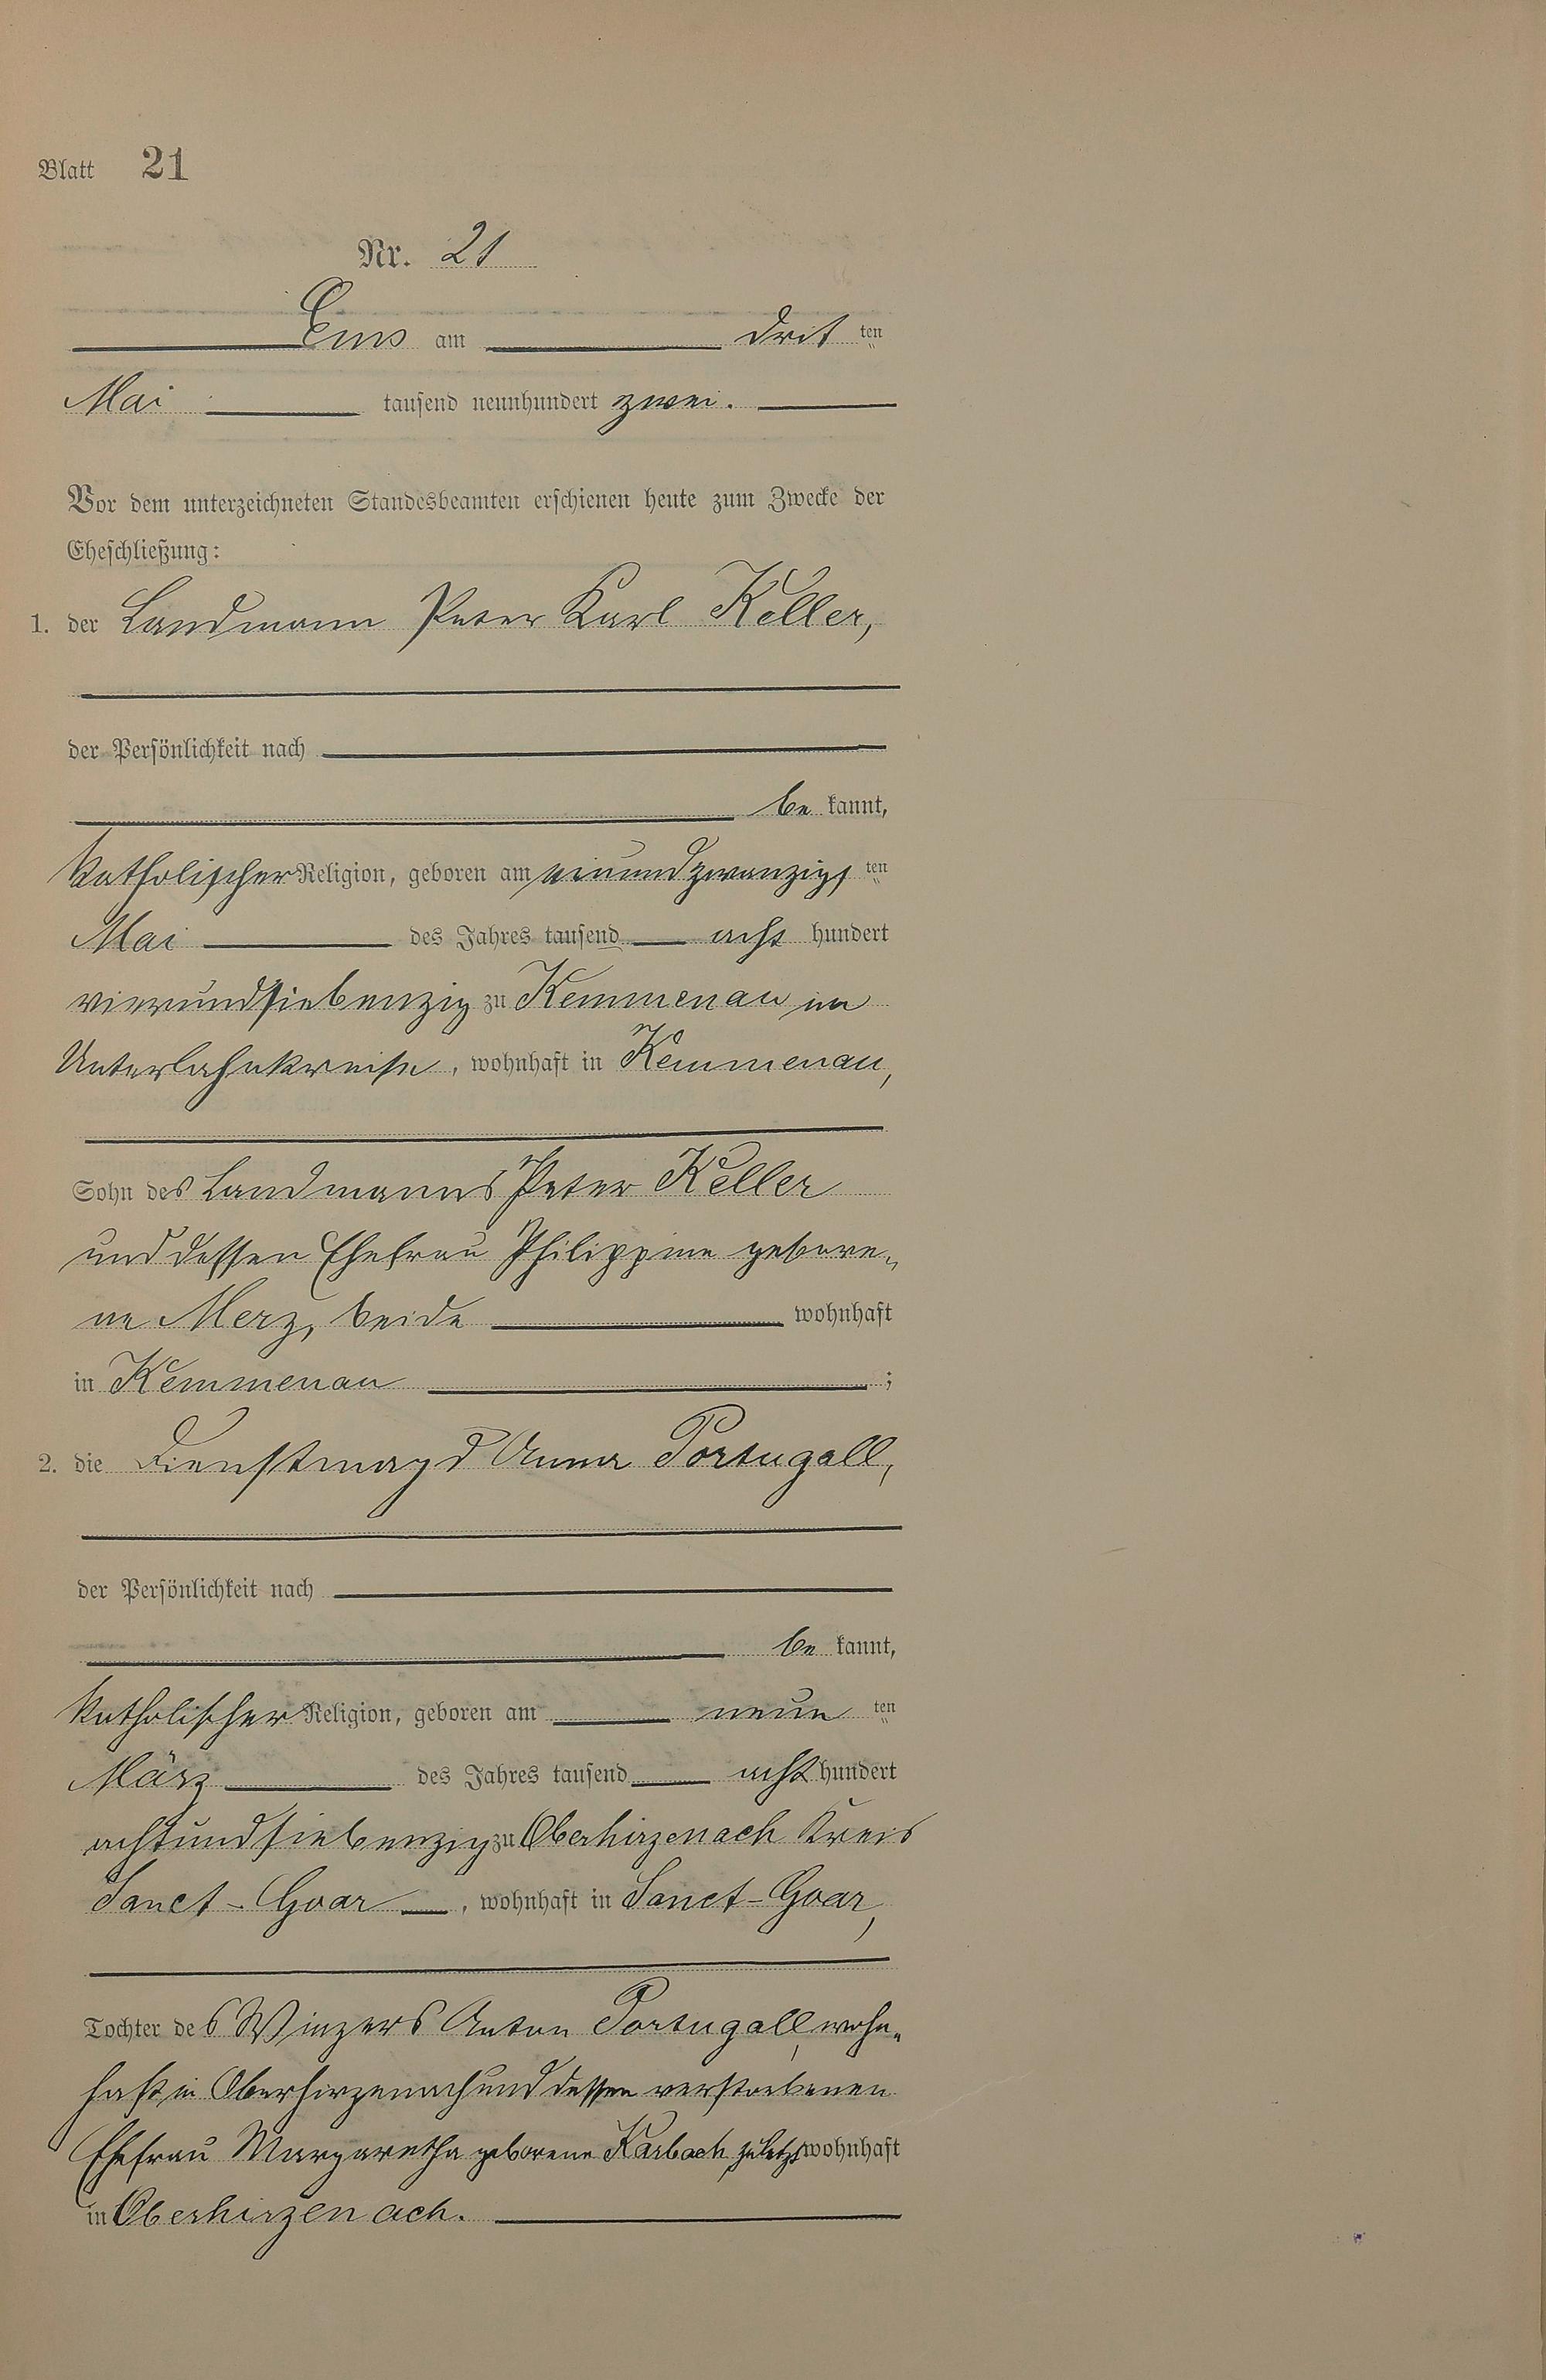 Blatt 21
Nr. 21
Ems am drit ten
Mai tausend neunhundert zwei.
Vor dem unterzeichneten Standesbeamten erschienen heute zum Zwecke der
Eheschließung:
1. der Landmann Peter Karl Keller,
der Persönlichkeit nach
be kannt,
katholischer Religion, geboren am einundzwanzigs ten
Mai des Jahres tausend acht hundert
vierundsiebenzig zu Kemmenau im
Unterlahnkreise, wohnhaft in Kemmenau,
Sohn des Landmanns Peter Keller
und dessen Ehefrau Philippine gebore-
ne Merz, beide wohnhaft
in Kemmenau ;
2. die Dienstmagd Anna Portugall,
der Persönlichkeit nach
be kannt,
katholischer Religion, geboren am neun ten
März des Jahres tausend acht hundert
achtundsiebenzig zu Oberhirzenach Kreis
Sanct-Goar , wohnhaft in Sanct-Goar,
Tochter des Winzers Anton Portugall, wohn-
haft in Oberhirzenach und dessen verstorbenen
Ehefrau Margaretha geborene Karbach zuletzt wohnhaft
in Oberhirzenach.